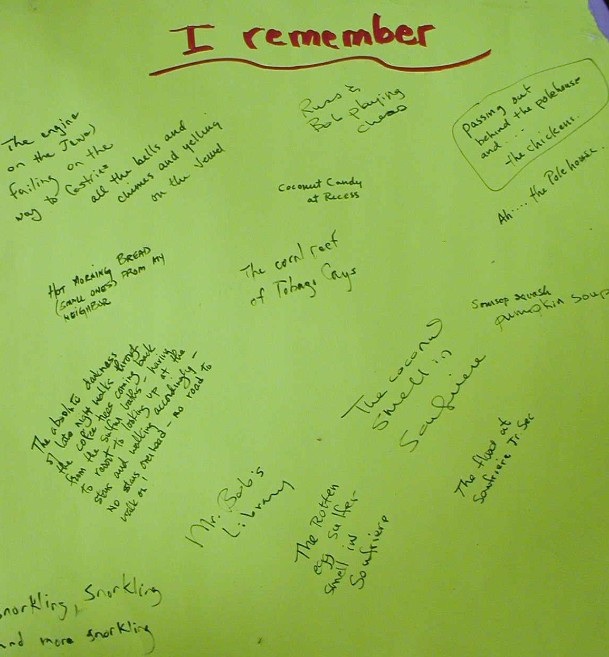 I remember
The engine
on the Jewel
failing on the
way to Castries
all the bells and
chimes and yelling
on the Jewel
Russ &
Bob playing
chess
passing out
behind the polehouse
and ....
the chickens.
Ah.... the Polehouse.
Coconut Candy
at Recess
HOT MORNING BREAD
(SMALL ONES) FROM MY
NEIGHBOR
The coral reef
of Tobago Cays
Soursop squash
pumpkin soup
The absolute darkness
of late night walks through
the coffee trees coming back
from the sulfur baths - having
to resort to looking up at the
stars and walking accordingly -
No stars overhead - no road to
walk on!
The coconut
smell in
Soufriere
The floor at
Soufriere Jr Sec
Mr. Bob's
Library
The Rotten
egg sulfer
smell in
Soufriere
snorkling, snorkling
and more snorkling